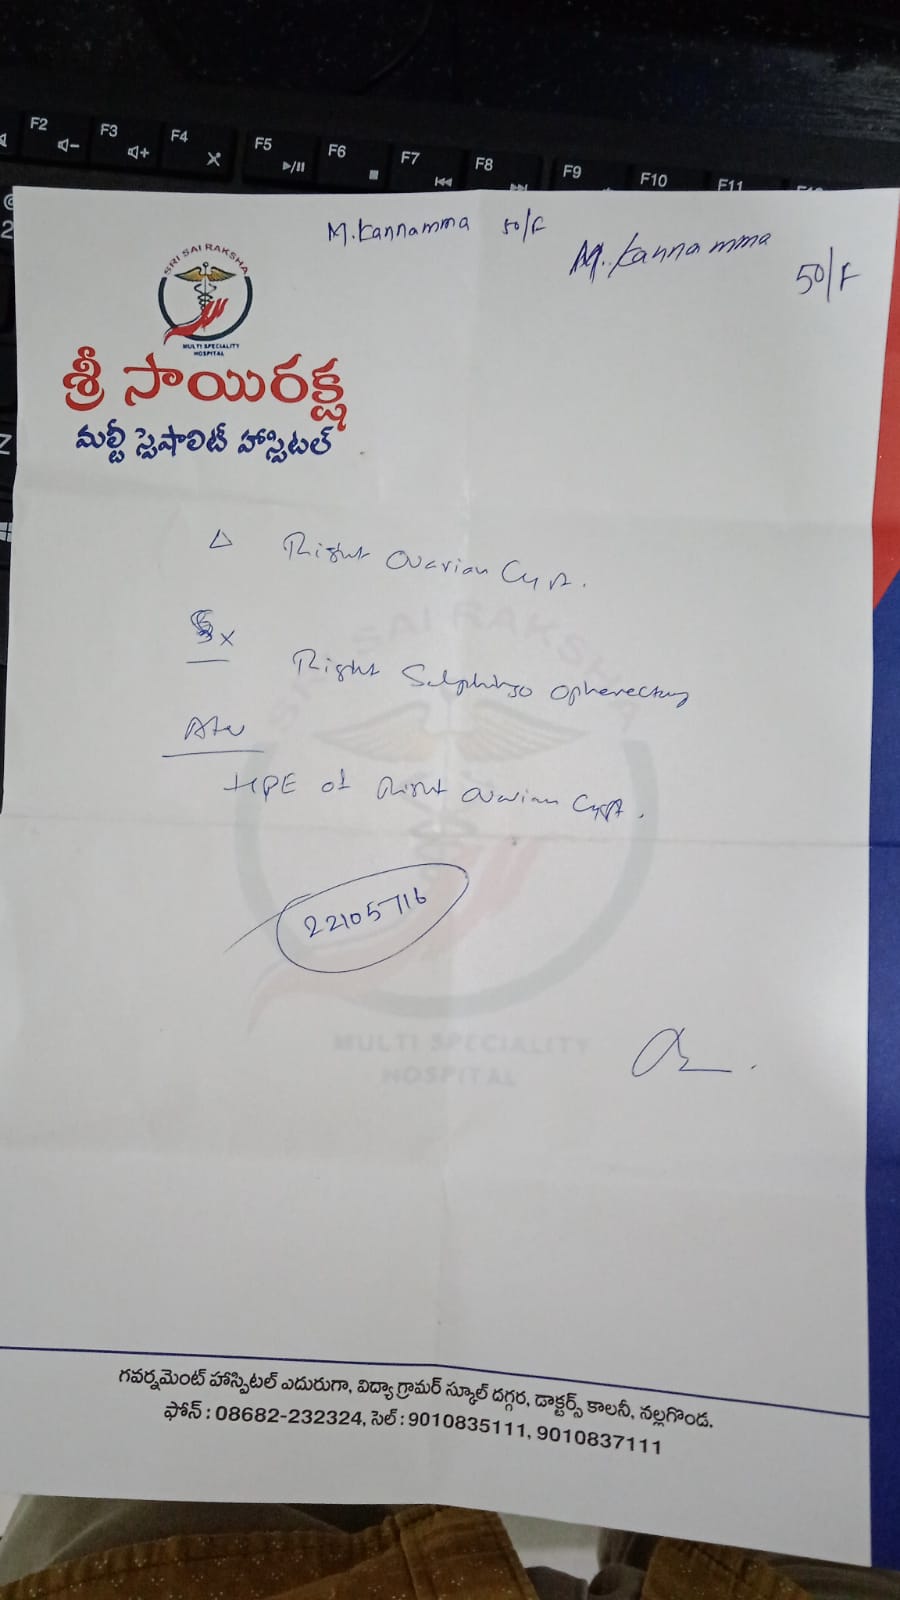 F2 F3 F4 F5 F6 F7 F8 F9 F10 F11
2
Z
M. Kannamma 50/F
M. Kannamma
50/F
SRI SAI RAKSHA
MULTI SPECIALITY
HOSPITAL
శ్రీ సాయిరక్ష
మల్టీ స్పెషాలిటీ హాస్పిటల్
Δ Right Ovarian Cyst.
Sx
Right Salphingo Opherectomy
Adv
HPE of Right Ovarian Cyst.
22105716
SRI SAI RAKSHA
MULTI SPECIALITY
HOSPITAL
గవర్నమెంట్ హాస్పిటల్ ఎదురుగా, విద్యా గ్రామర్ స్కూల్ దగ్గర, డాక్టర్స్ కాలనీ, నల్లగొండ.
ఫోన్ : 08682-232324, సెల్ : 9010835111, 9010837111